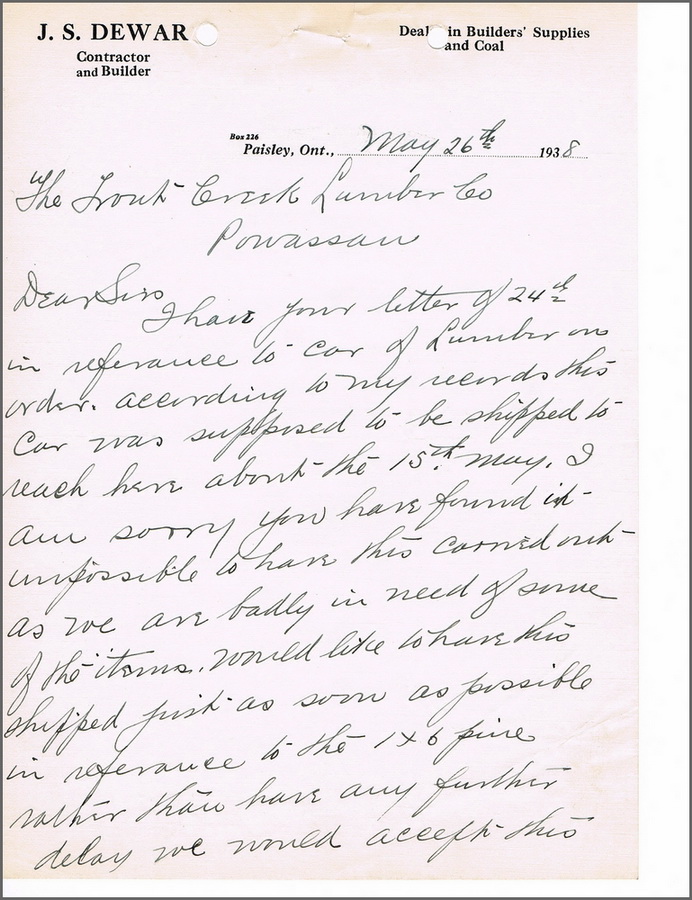 J. S. DEWAR
Contractor
and Builder
Deal in Builders' Supplies
and Coal
Box 226
Paisley, Ont., May 26th 1938
The Trout Creek Lumber Co
Powassan
Dear Sirs
I have your letter of 24th
in referance to car of Lumber on
order. according to my records this
Car was supposed to be shipped to
reach here about the 15th. May. I
am sorry you have found it
impossible to have this carried out
as we are badly in need of some
of the items. would like to have this
shipped just as soon as possible
in referance to the 1x6 pine
rather than have any further
delay we would accept this